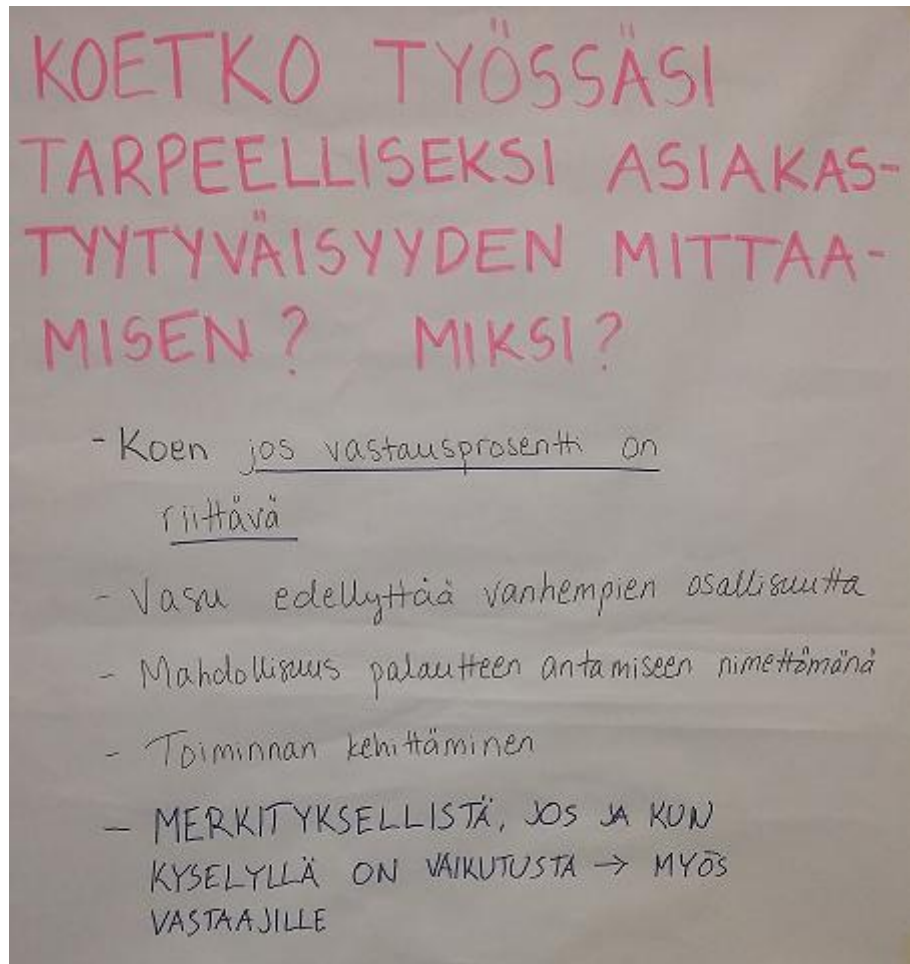 KOETKO TYÖSSÄSI
TARPEELLISEKSI ASIAKAS-
TYYTYVÄISYYDEN MITTAA-
MISEN? MIKSI?
- Koen jos vastausprosentti on
riittävä
- Vasu edellyttää vanhempien osallisuutta
- Mahdollisuus palautteen antamiseen nimettömänä
- Toiminnan kehittäminen
- MERKITYKSELLISTÄ, JOS JA KUN
KYSELYLLÄ ON VAIKUTUSTA → MYÖS
VASTAAJILLE